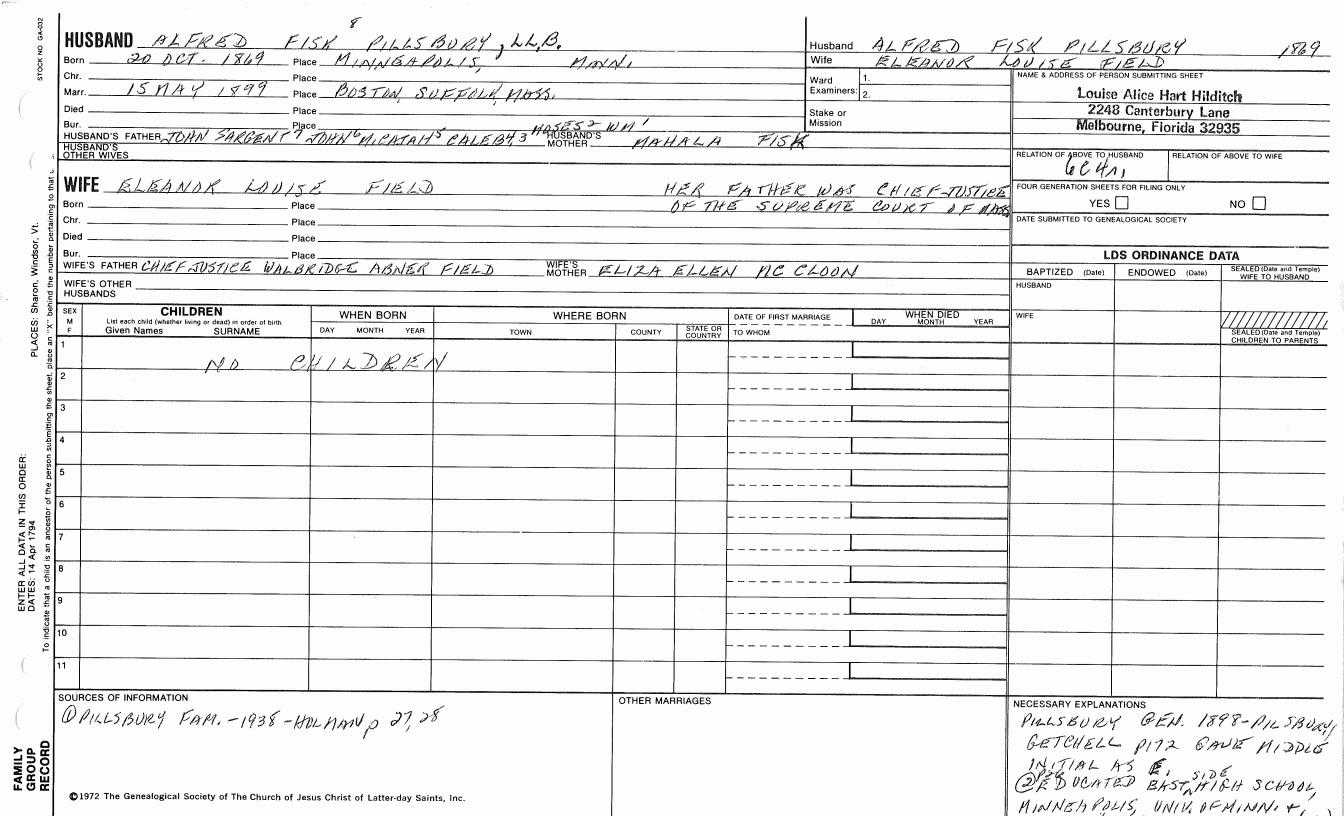 STOCK NO. GA-032
PLACES: Sharon, Windsor, Vt.
ENTER ALL DATA IN THIS ORDER:
DATES: 14 Apr 1794
To indicate that a child is an ancestor of the person submitting the sheet, place an "X" behind the number pertaining to that
FAMILY
GROUP
RECORD
HUSBAND ALFRED FISK PILLSBURY 8, LL.B.
Born 20 OCT. 1869 Place MINNEAPOLIS, MINN.
Chr. Place
Marr. 15 MAY 1899 Place BOSTON, SUFFOLK, MASS.
Died Place
Bur. Place
HUSBAND'S FATHER JOHN SARGENT 7 JOHN 6 MICAJAH 5 CALEB 4,3 MOSES 2 WM 1 HUSBAND'S MOTHER MAHALA FISK
HUSBAND'S OTHER WIVES
WIFE ELEANOR LOUISE FIELD HER FATHER WAS CHIEF-JUSTICE
OF THE SUPREME COURT OF MASS
Born Place
Chr. Place
Died Place
Bur. Place
WIFE'S FATHER CHIEF-JUSTICE WALBRIDGE ABNER FIELD WIFE'S MOTHER ELIZA ELLEN MC CLOON
WIFE'S OTHER HUSBANDS
Husband ALFRED FISK PILLSBURY 1869
Wife ELEANOR LOUISE FIELD
Ward Examiners: 1.
2.
Stake or Mission
NAME & ADDRESS OF PERSON SUBMITTING SHEET
Louise Alice Hart Hilditch
2248 Canterbury Lane
Melbourne, Florida 32935
RELATION OF ABOVE TO HUSBAND RELATION OF ABOVE TO WIFE
6C4R,
FOUR GENERATION SHEETS FOR FILING ONLY
YES NO
DATE SUBMITTED TO GENEALOGICAL SOCIETY
LDS ORDINANCE DATA
BAPTIZED (Date) ENDOWED (Date) SEALED (Date and Temple) WIFE TO HUSBAND
HUSBAND
WIFE
SEALED (Date and Temple) CHILDREN TO PARENTS
SEX M F CHILDREN WHEN BORN WHERE BORN DATE OF FIRST MARRIAGE WHEN DIED
List each child (whether living or dead) in order of birth
Given Names SURNAME DAY MONTH YEAR TOWN COUNTY STATE OR COUNTRY TO WHOM DAY MONTH YEAR
1
NO CHILDREN
2
3
4
5
6
7
8
9
10
11
SOURCES OF INFORMATION
① PILLSBURY FAM. -1938 -HOLMAN p 27,28
OTHER MARRIAGES
NECESSARY EXPLANATIONS
PILLSBURY GEN. 1898-PILSBURY,
GETCHELL P172 GAVE MIDDLE
INITIAL AS E.
② EDUCATED EAST SIDE HIGH SCHOOL,
MINNEAPOLIS, UNIV. OF MINN. +
©1972 The Genealogical Society of The Church of Jesus Christ of Latter-day Saints, Inc.